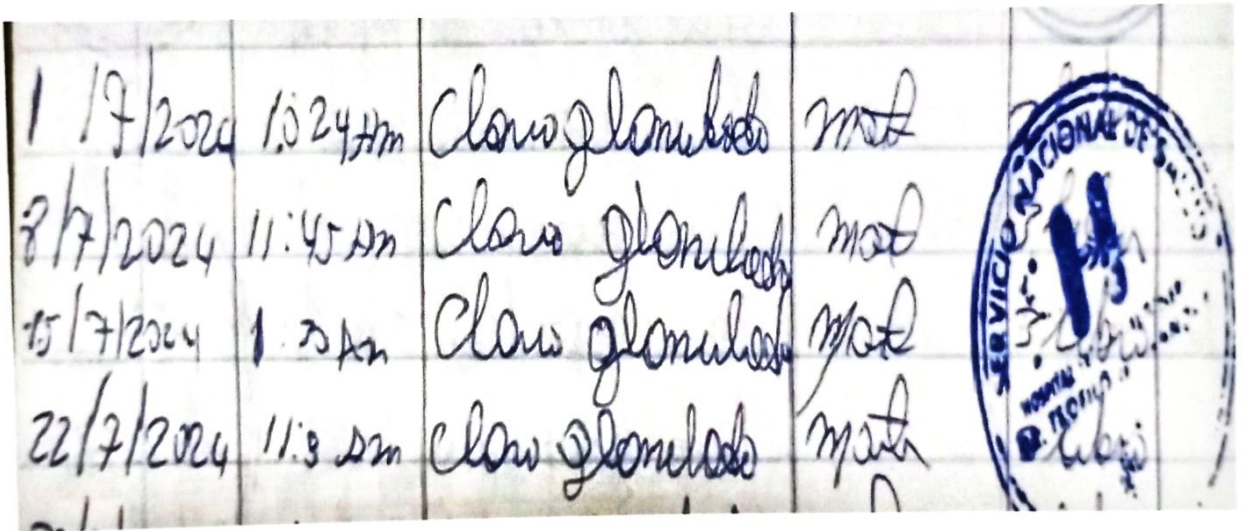 1 /7/2024 1:024 Am Cloro glanulado mat
8/7/2024 11:45 Am Cloro glanulado mat
15/7/2024 Am Cloro glanulado mat
22/7/2024 11:3 Am Cloro glanulado mat
SERVICIO NACIONAL DE
HOSPITAL
TEOFILO